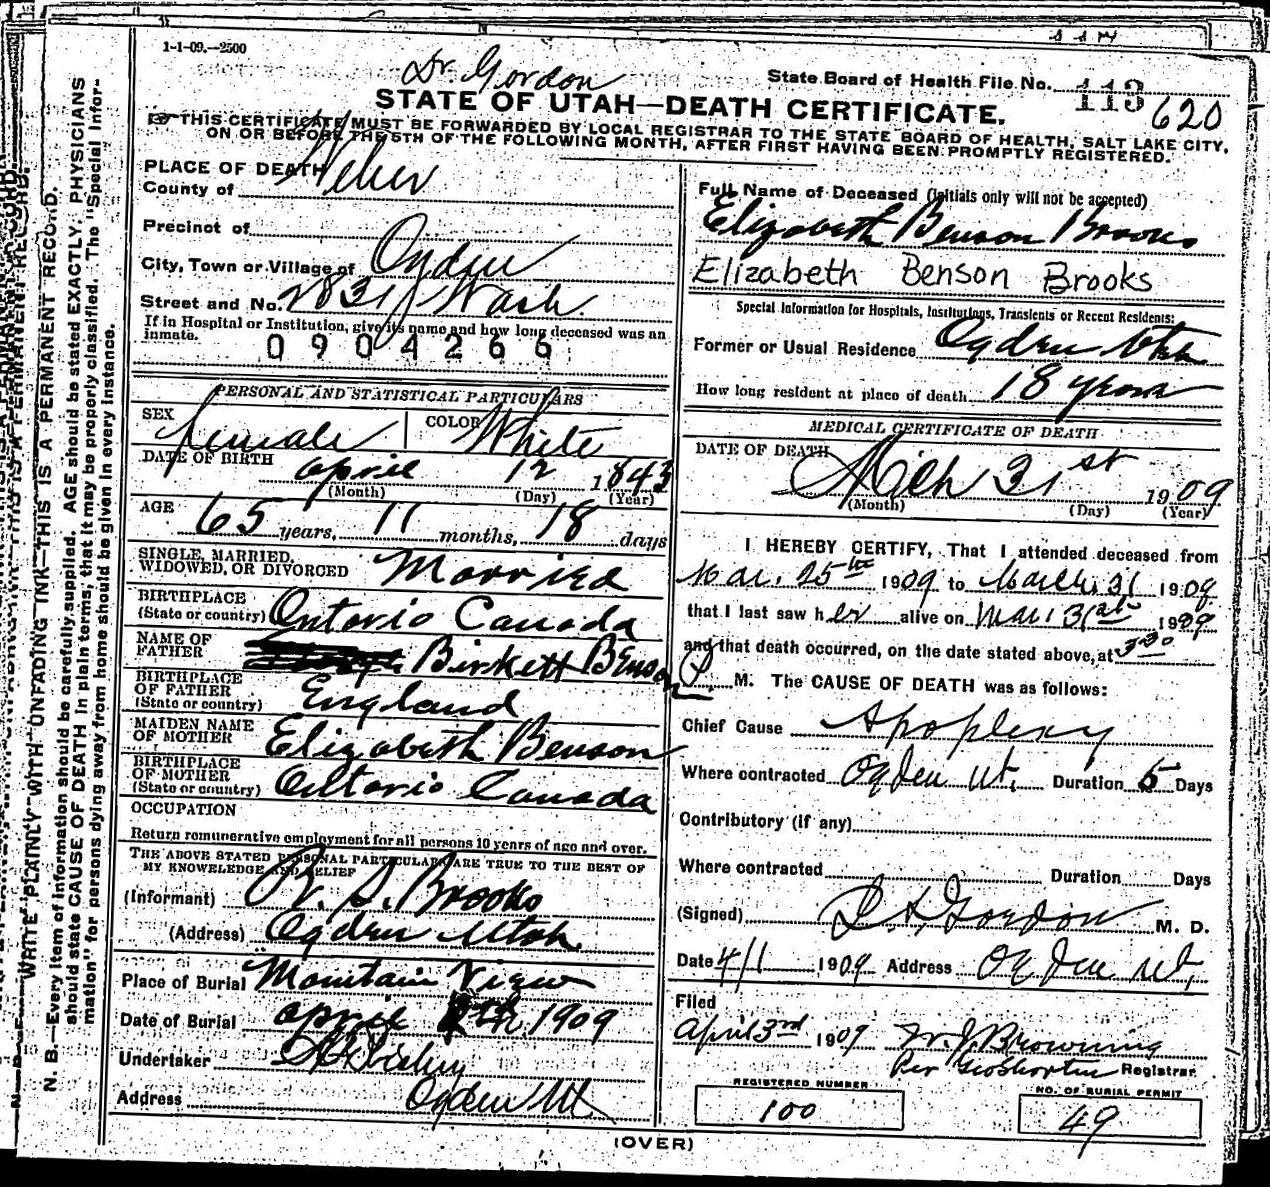 1-1-09.--2500
Dr. Gordon
State Board of Health File No. 113 620
STATE OF UTAH—DEATH CERTIFICATE.
THIS CERTIFICATE MUST BE FORWARDED BY LOCAL REGISTRAR TO THE STATE BOARD OF HEALTH, SALT LAKE CITY,
ON OR BEFORE THE 5TH OF THE FOLLOWING MONTH, AFTER FIRST HAVING BEEN PROMPTLY REGISTERED.
PLACE OF DEATH
County of Weber
Precinct of
City, Town or Village of Ogden
Street and No. 2831 Wash.
If in Hospital or Institution, give its name and how long deceased was an
inmate.
0904266
PERSONAL AND STATISTICAL PARTICULARS
SEX female COLOR White
DATE OF BIRTH april 12 1843
(Month) (Day) (Year)
AGE 65 years, 11 months, 18 days
SINGLE, MARRIED,
WIDOWED, OR DIVORCED Married
BIRTHPLACE
(State or country) Ontario Canada
NAME OF
FATHER Birkett Benson
BIRTHPLACE
OF FATHER
(State or country) England
MAIDEN NAME
OF MOTHER Elizabeth Benson
BIRTHPLACE
OF MOTHER
(State or country) Ontario Canada
OCCUPATION
Return remunerative employment for all persons 10 years of age and over.
THE ABOVE STATED PERSONAL PARTICULARS ARE TRUE TO THE BEST OF
MY KNOWLEDGE AND BELIEF
(Informant) R. S. Brooks
(Address) Ogden Utah
Place of Burial Mountain View
Date of Burial april 1909
Undertaker
Address Ogden Ut
Full Name of Deceased (initials only will not be accepted)
Elizabeth Benson Brooks
Elizabeth Benson Brooks
Special Information for Hospitals, Institutions, Transients or Recent Residents:
Former or Usual Residence Ogden Utah
How long resident at place of death 18 years
MEDICAL CERTIFICATE OF DEATH
DATE OF DEATH Mch 31st 1909
(Month) (Day) (Year)
I HEREBY CERTIFY, That I attended deceased from
Mar. 25th 1909 to March 31 1909
that I last saw her alive on Mar 31st 1909
and that death occurred, on the date stated above, at 3 30
P. M. The CAUSE OF DEATH was as follows:
Chief Cause Apoplexy
Where contracted Ogden Ut. Duration 5 Days
Contributory (if any)
Where contracted Duration Days
(Signed) Gordon M. D.
Date 4/1 1909 Address Ogden Ut,
Filed
April 3rd 1909 W. J. Browning
Per Geo Shorten Registrar
REGISTERED NUMBER
100
NO. OF BURIAL PERMIT
49
(OVER)
WRITE PLAINLY WITH UNFADING INK—THIS IS A PERMANENT RECORD.
N. B.—Every item of information should be carefully supplied. AGE should be stated EXACTLY. PHYSICIANS
should state CAUSE OF DEATH in plain terms, that it may be properly classified. The "Special Infor-
mation" for persons dying away from home should be given in every instance.